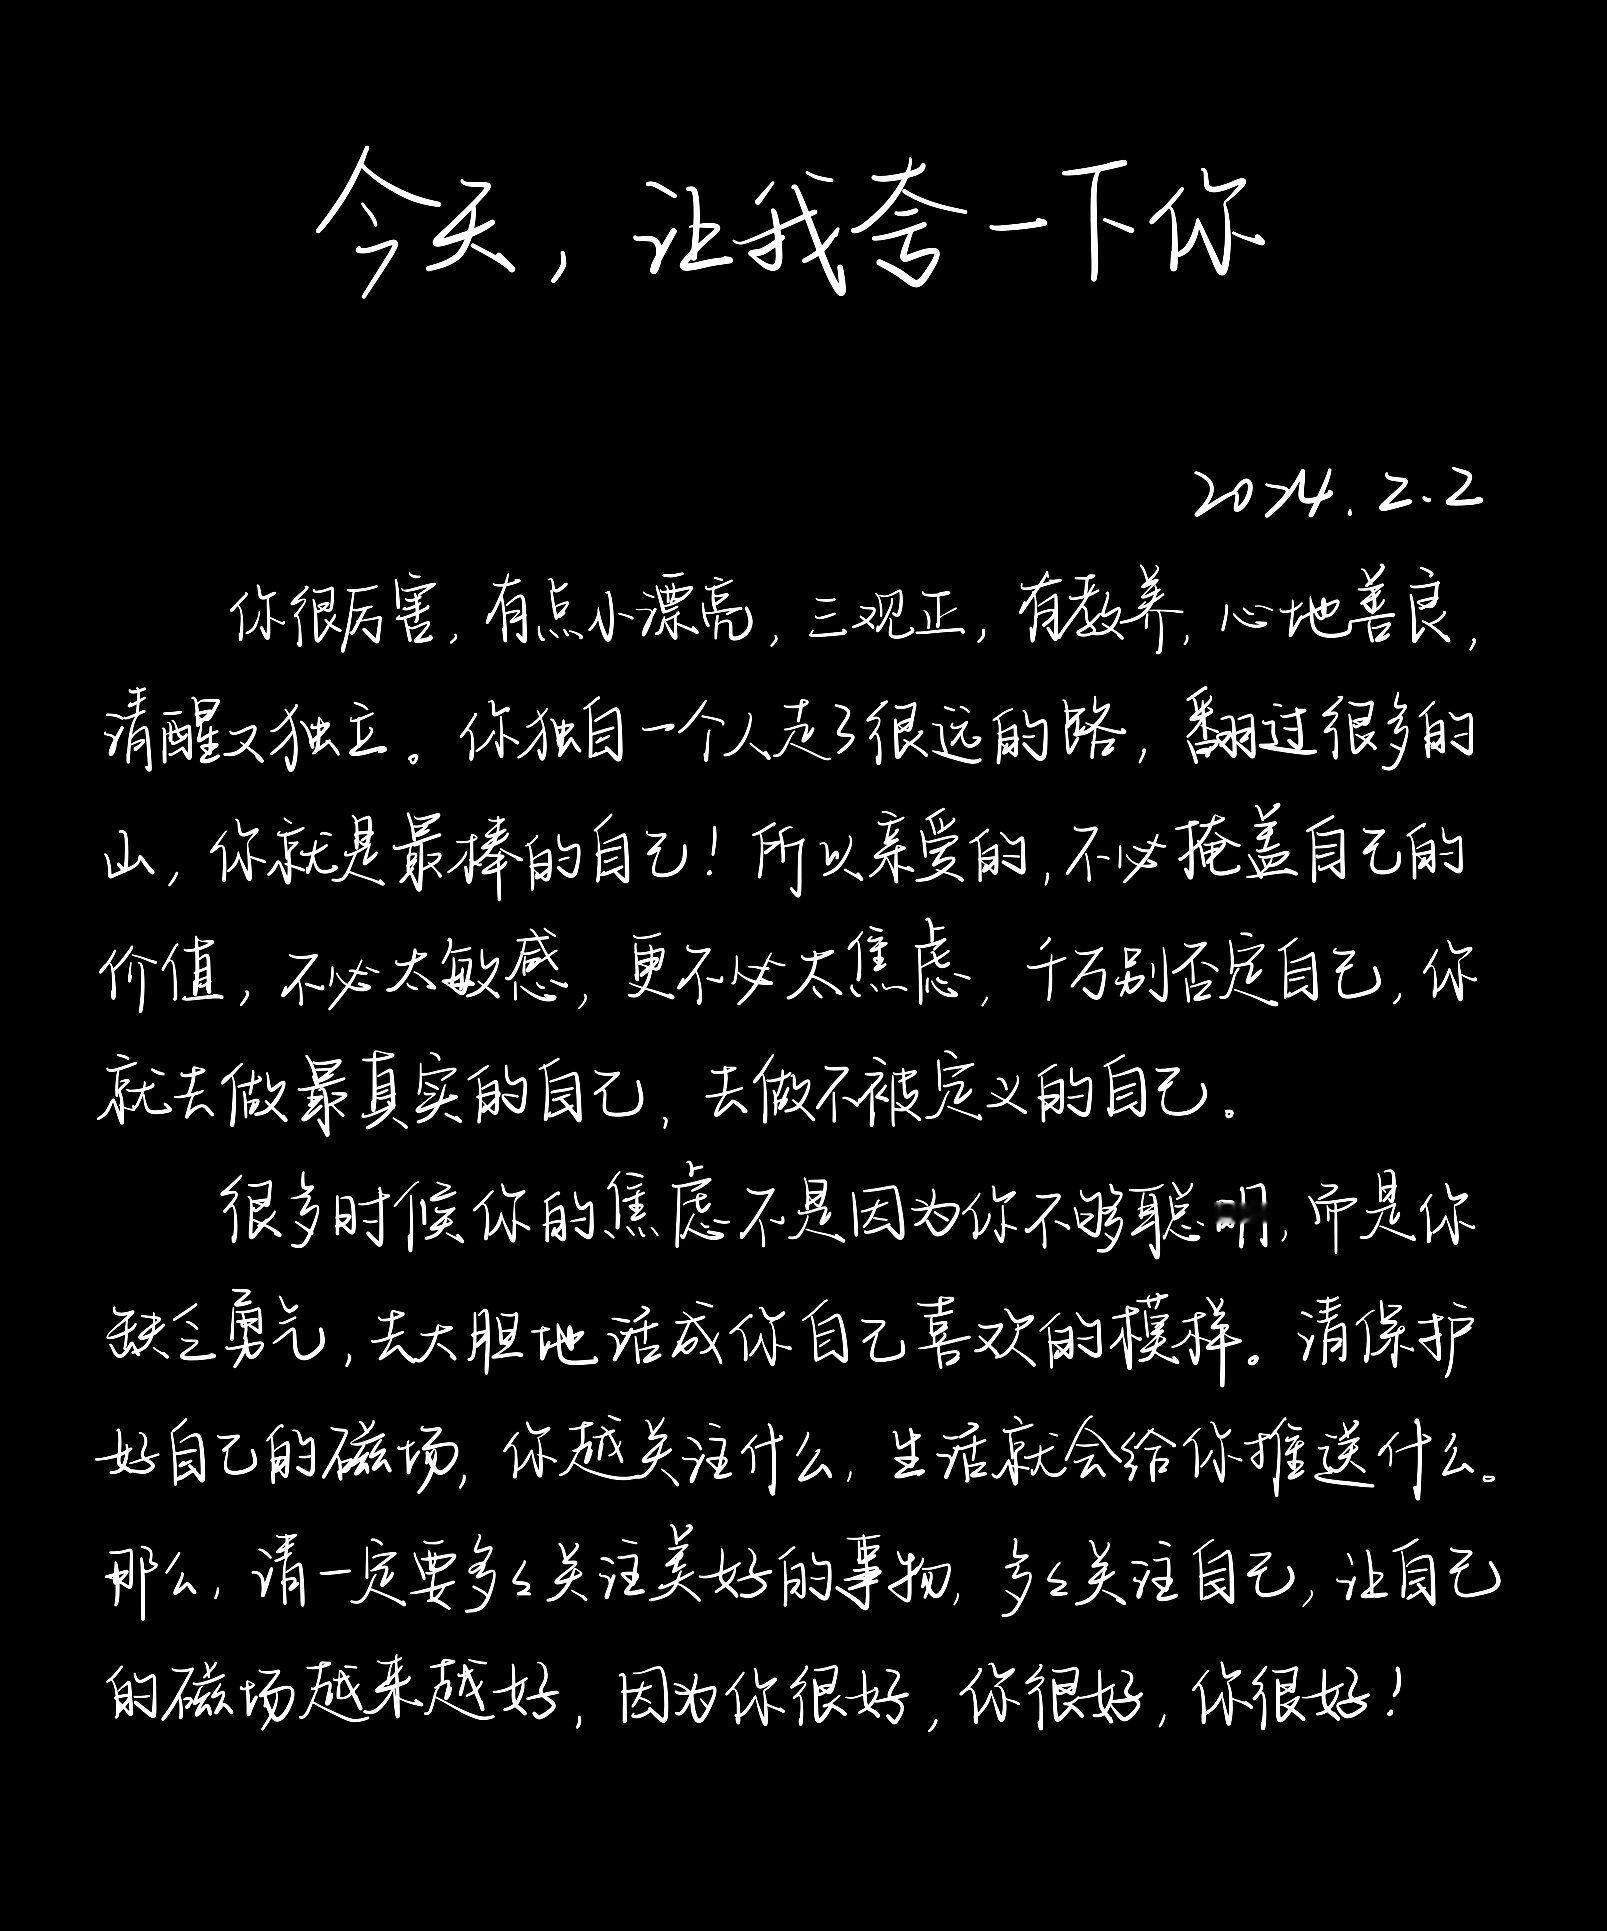 今天，让我夸一下你
2024.2.2
你很厉害，有点小漂亮，三观正，有教养，心地善良，
清醒又独立。你独自一个人走了很远的路，翻过很多的
山，你就是最棒的自己！所以亲爱的，不必掩盖自己的
价值，不必太敏感，更不必太焦虑，千万别否定自己，你
就去做最真实的自己，去做不被定义的自己。
很多时候你的焦虑不是因为你不够聪明，而是你
缺乏勇气，去大胆地活成你自己喜欢的模样。请保护
好自己的磁场，你越关注什么，生活就会给你推送什么。
那么，请一定要多々关注美好的事物，多々关注自己，让自己
的磁场越来越好，因为你很好，你很好，你很好！